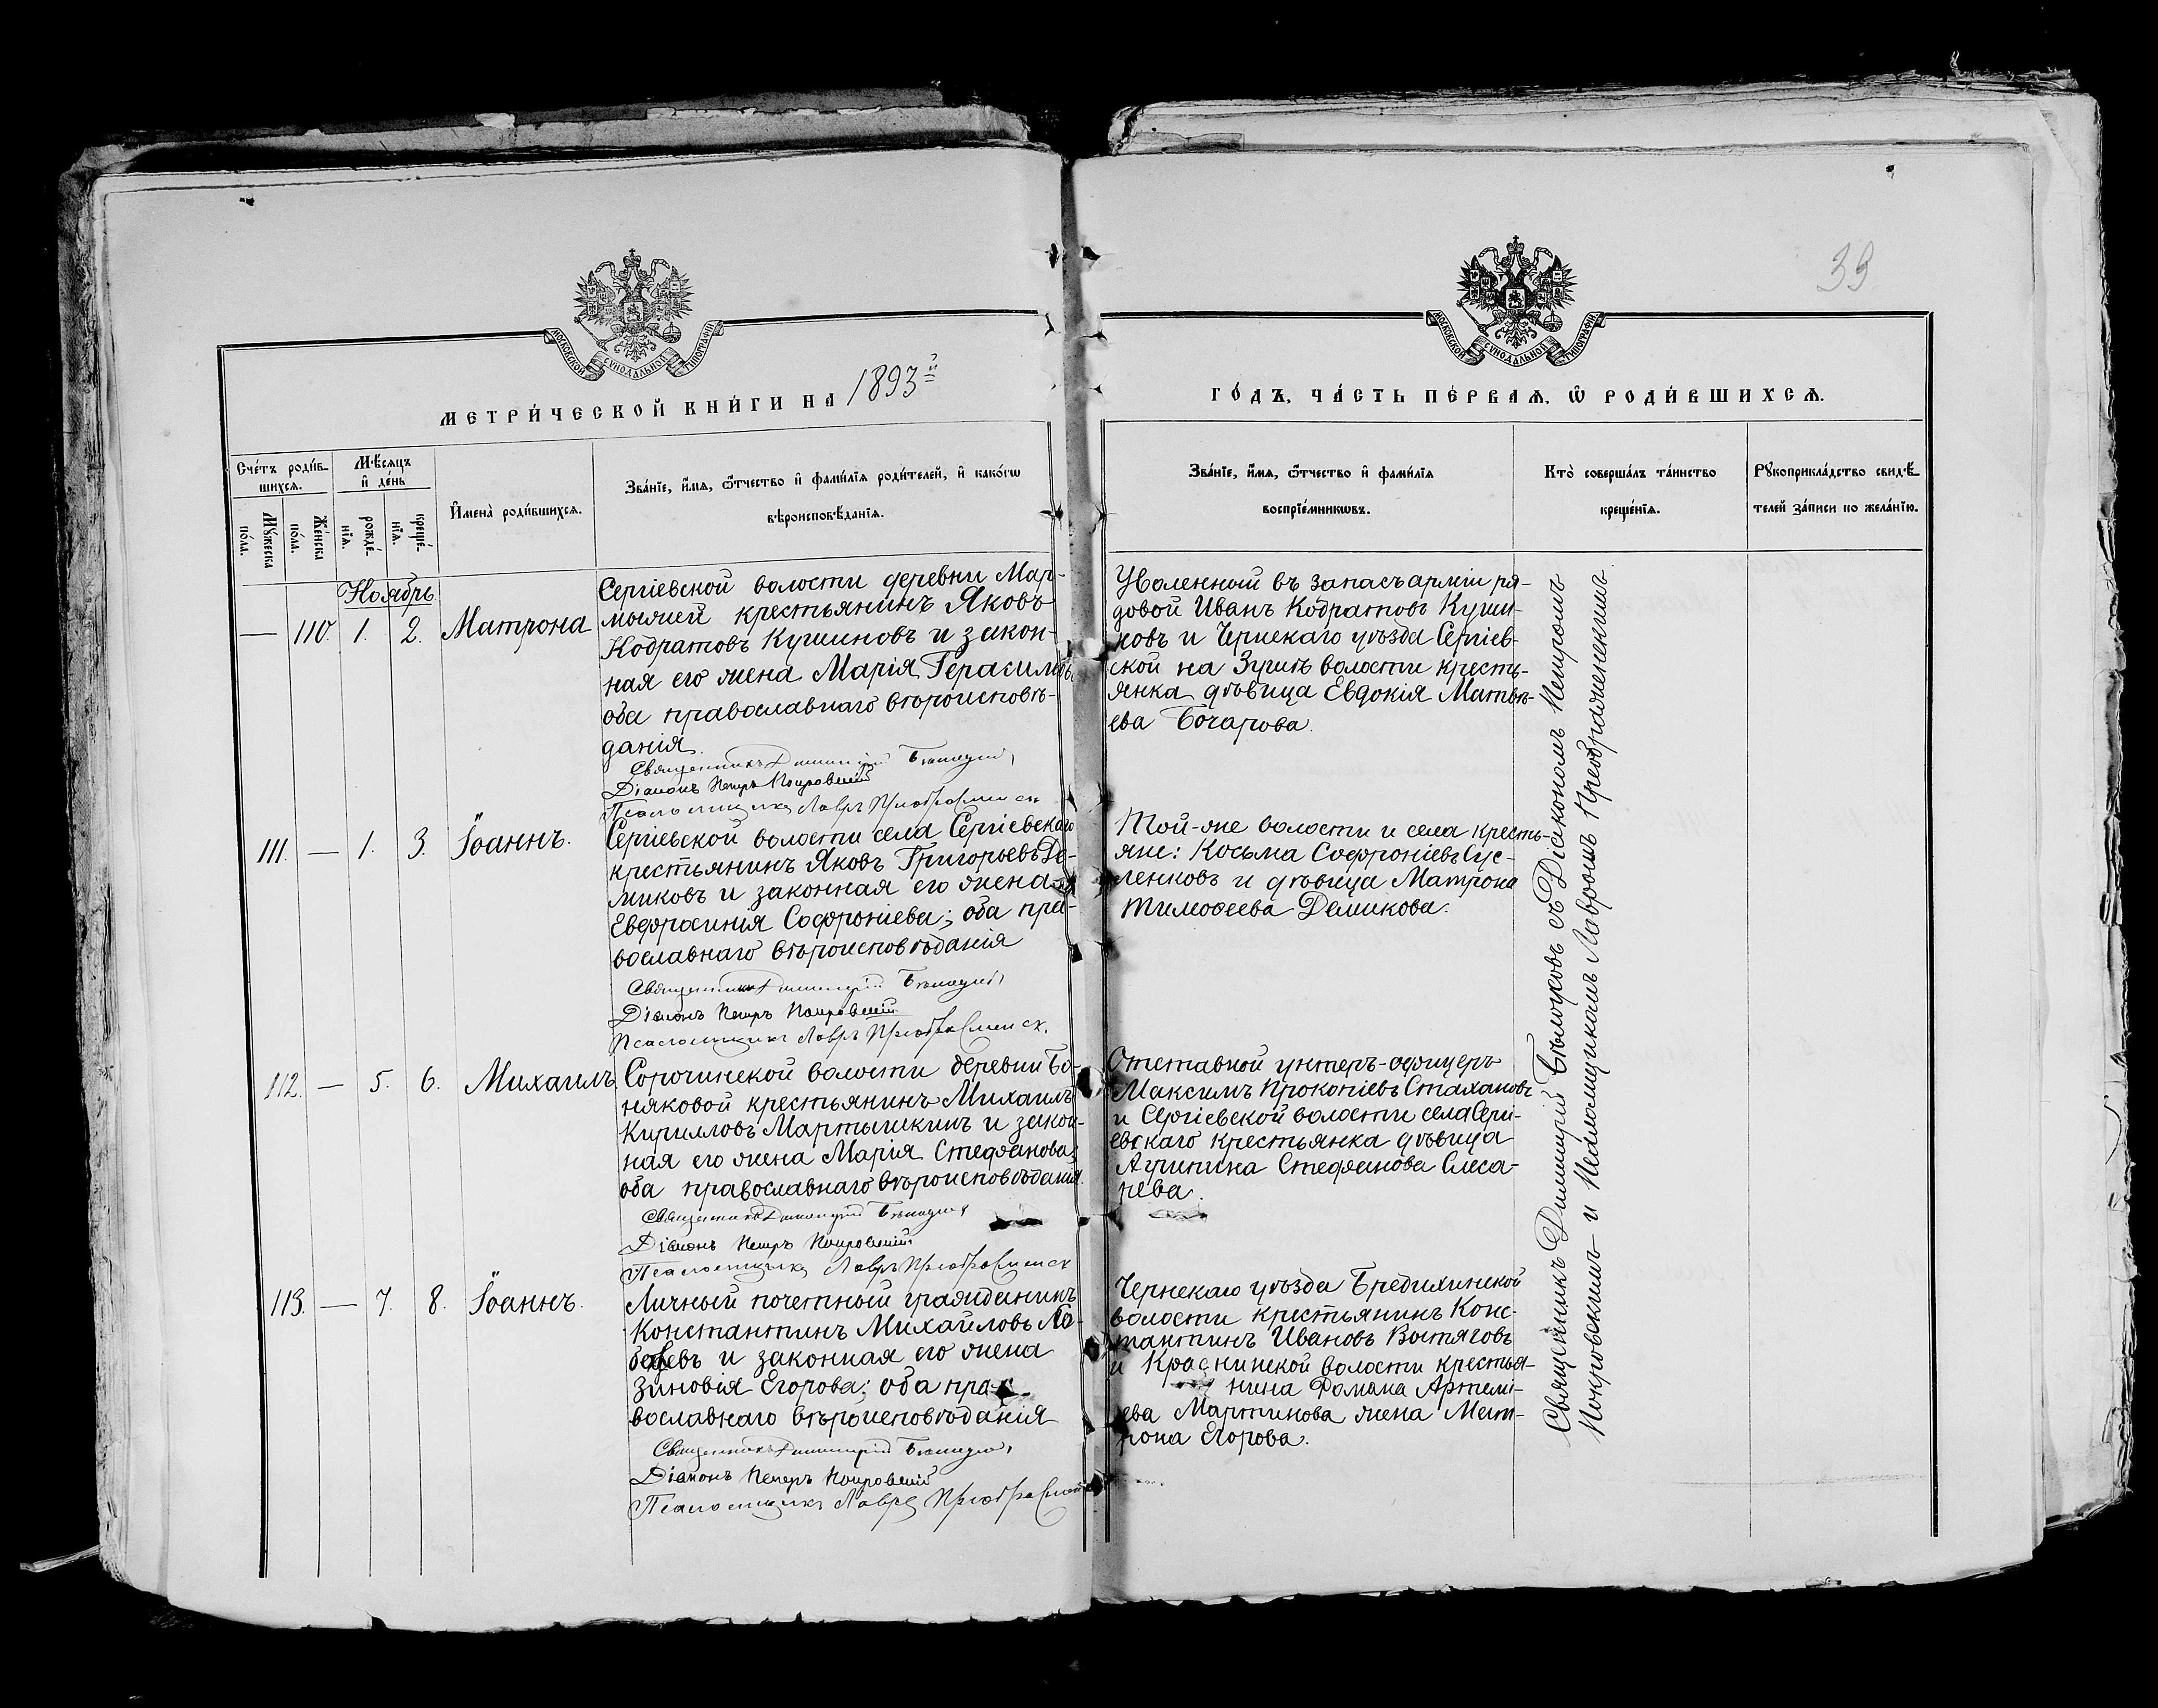 39
МОСКОВСКОЙ СѴНОДАЛЬНОЙ ТИПОГРАФІИ
МОСКОВСКОЙ СѴНОДАЛЬНОЙ ТИПОГРАФІИ
МЕТРИ́ЧЕСКОЙ КНИ́ГИ НА 1893й
ГО́ДЪ, ЧА́СТЬ ПЕ́РВАѦ, Ѽ РОДИ́ВШИХСѦ.
Счéтъ роди́в-
шихсѧ.
Мꙋ́жеска
по́ла.
Же́нска
по́ла.
Мѣ́сѧцъ
и҆ де́нь
рожде́-
нїѧ.
креще́-
нїѧ.
И҆мена̀ роди́вшихсѧ.
Зва́нїе, и҆́мѧ, ѻ҆́тчество и҆ фами́лїѧ роди́телей, и҆ како́гѡ
вѣроисповѣ́данїѧ.
Зва́нїе, и҆́мѧ, ѻ҆́тчество и҆ фами́лїѧ
воспрїе́мникѡвъ.
Кто̀ соверша́лъ та́инство
креще́нїѧ.
Рꙋкоприкла́дство свидѣ́-
телей за́писи по жела́нїю.
Ноябрь
— 110. 1. 2. Матрона
Сергіевской волости деревни Мар-
мыжей крестьянинъ Яковъ
Кодратовъ Кушиновъ и закон-
ная его жена Марія Герасимова
оба православнаго вѣроисповѣ-
данія.
Священникъ Димитрій
Діаконъ Петръ Покровскій
Псаломщикъ Лавръ Преображенск
Уволенный въ запасъ арміи ря-
довой Иванъ Кодратовъ Куши-
новъ и Чернскаго уѣзда Сергіев-
ской на Зушѣ волости кресть-
янка дѣвица Евдокія Матвѣ-
ева Бочарова.
111. — 1. 3. Іоаннъ.
Сергіевской волости села Сергіевскаго
крестьянинъ Яковъ Григорьевъ Де-
миковъ и законная его жена
Евфросинія Софроніева; оба пра-
вославнаго вѣроисповѣданія
Священникъ Димитрій
Діаконъ Петръ Покровскій
Псаломщикъ Лавръ Преображенск.
Той-же волости и села кресть-
яне: Косьма Софроніевъ Сус-
ленковъ и дѣвица Матрона
Тимоѳеева Демикова.
112. — 5. 6. Михаилъ
Сорочинской волости деревни Бо-
няковой крестьянинъ Михаилъ
Кирилловъ Мартышкинъ и закон-
ная его жена Марія Стефанова;
оба православнаго вѣроисповѣданія
Священникъ Димитрій
Діаконъ Петръ Покровскій
Псаломщикъ Лавръ Преображенск
Отставной унтеръ-офицеръ
Максимъ Прокопіевъ Стахановъ
и Сергіевской волости села Серги-
евскаго крестьянка дѣвица
Агрипина Стефанова Слеса-
рева.
113. — 7. 8. Іоаннъ.
Личный почетный гражданинъ
Константинъ Михайловъ
и законная его жена
Зиновія Егорова; оба пра-
вославнаго вѣроисповѣданія
Священникъ Димитрій
Діаконъ Петръ Покровскій
Псаломщикъ Лавръ Преображенск
Чернскаго уѣзда Бредихинской
волости крестьянинъ Конс-
тантинъ Ивановъ Вытяговъ
и Краснинской волости крестья-
нина Романа Артемі-
ева Мартинова жена Мат-
рона Егорова.
Священникъ Димитрій съ Діакономъ Петромъ
Покровскимъ и Псаломщикомъ Лавромъ Преображенскимъ.